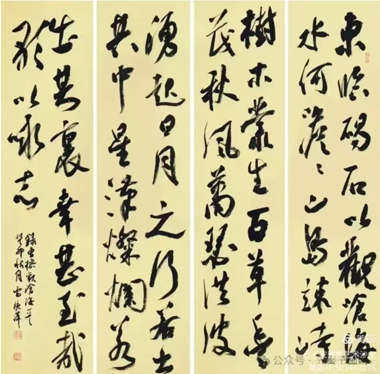 東臨碣石以觀滄海
水何澹〻山島竦峙
樹木叢生百草豐
茂秋風蕭瑟洪波
湧起日月之行若出
其中星漢燦爛若
出其裏幸甚至哉
歌以咏志
錄曹操觀滄海
癸卯秋月
公众号